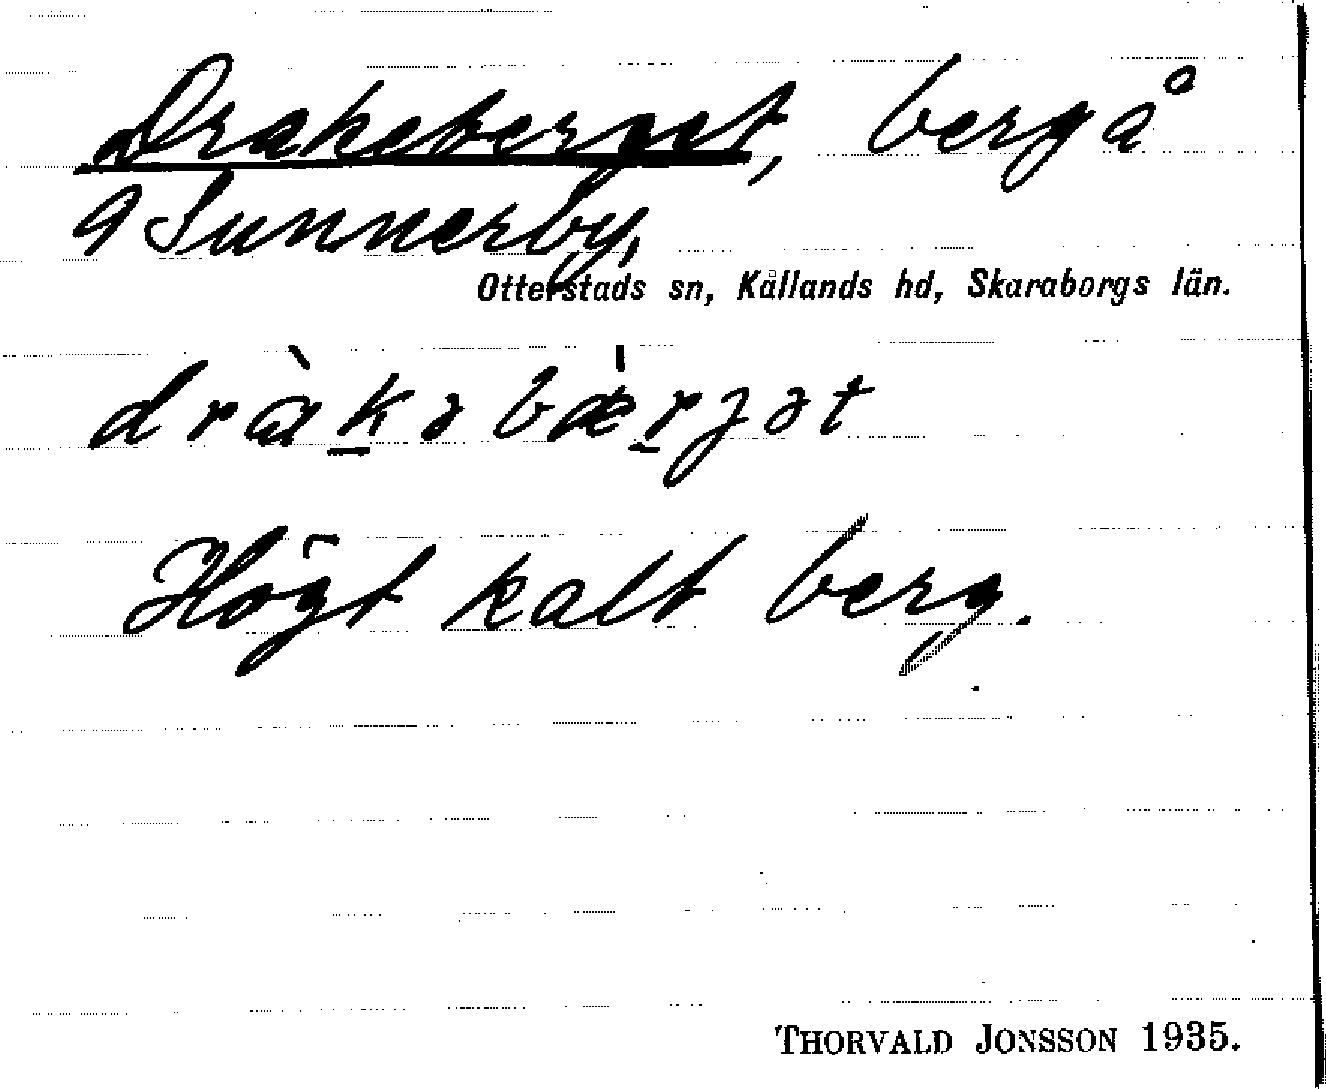 Drakeberget, berg å
9 Sunnerby,
Otterstads sn, Kållands hd, Skaraborgs län.
dràkəbæ̀rjət
Högt kalt berg.
THORVALD JONSSON 1935.